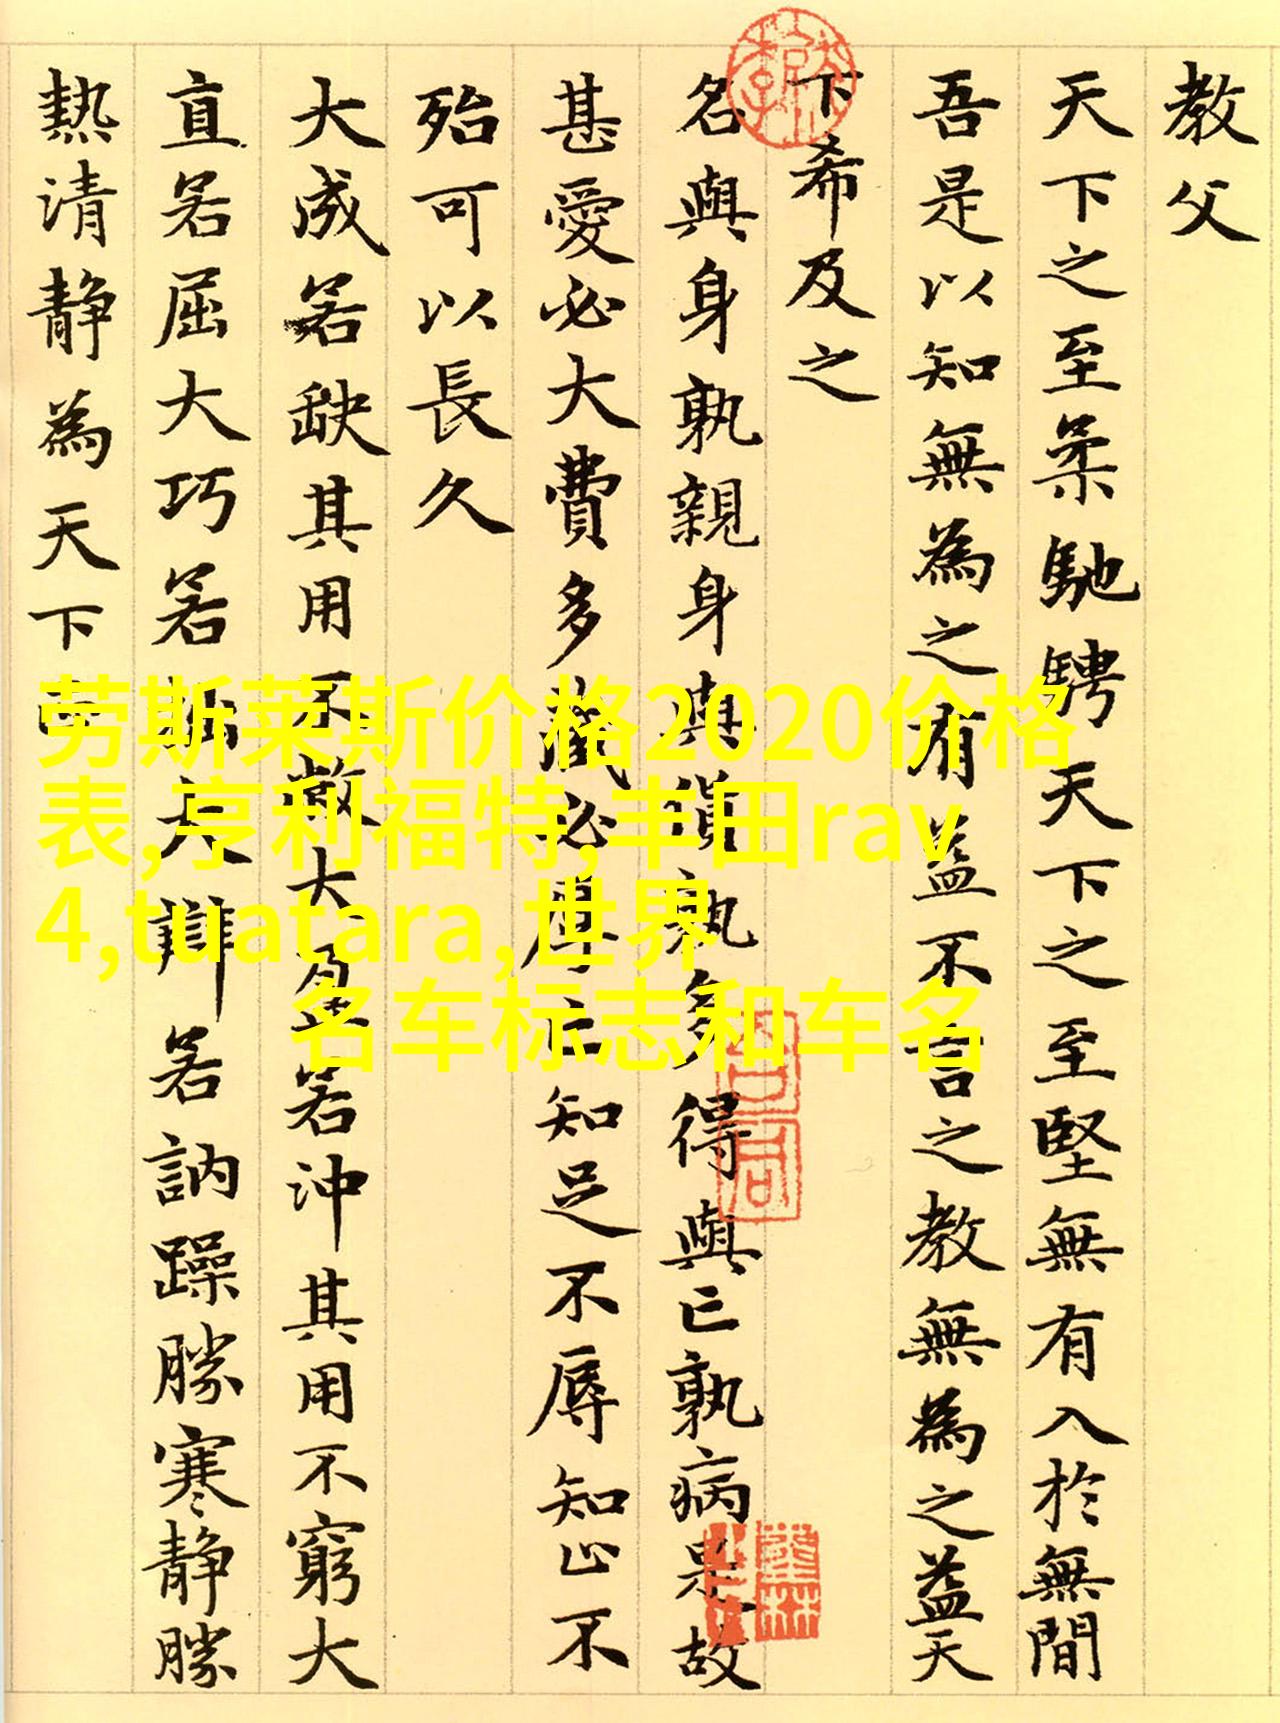 教父
天下之至柔馳騁天下之至堅無有入於無間
吾是以知無為之有益不言之教無為之益天
下希及之
名與身孰親身與貨孰多得與亡孰病是故
甚愛必大費多藏必厚亡知足不辱知止不
殆可以長久
大成若缺其用不敝大盈若沖其用不窮大
直若屈大巧若拙大辯若訥躁勝寒静勝
熱清静為天下正
劳斯莱斯价格2020价格
表,亨利福特,丰田rav
4,tuatara,世界
名车标志和车名